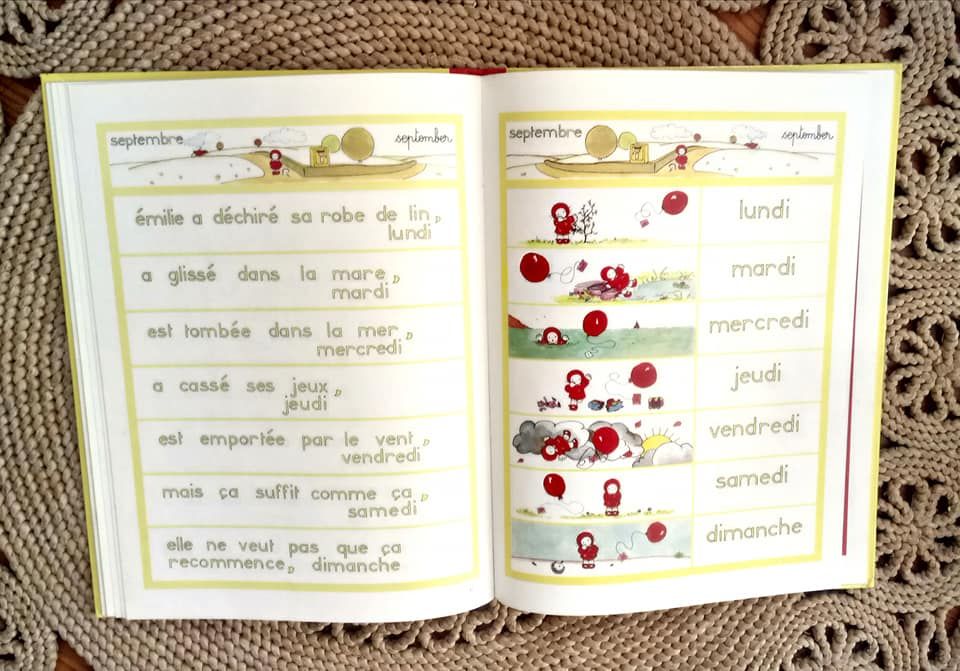 septembre september
émilie a déchiré sa robe de lin,
lundi
a glissé dans la mare,
mardi
est tombée dans la mer,
mercredi
a cassé ses jeux,
jeudi
est emportée par le vent,
vendredi
mais ça suffit comme ça,
samedi
elle ne veut pas que ça
recommence, dimanche
septembre september
lundi
mardi
mercredi
jeudi
vendredi
samedi
dimanche